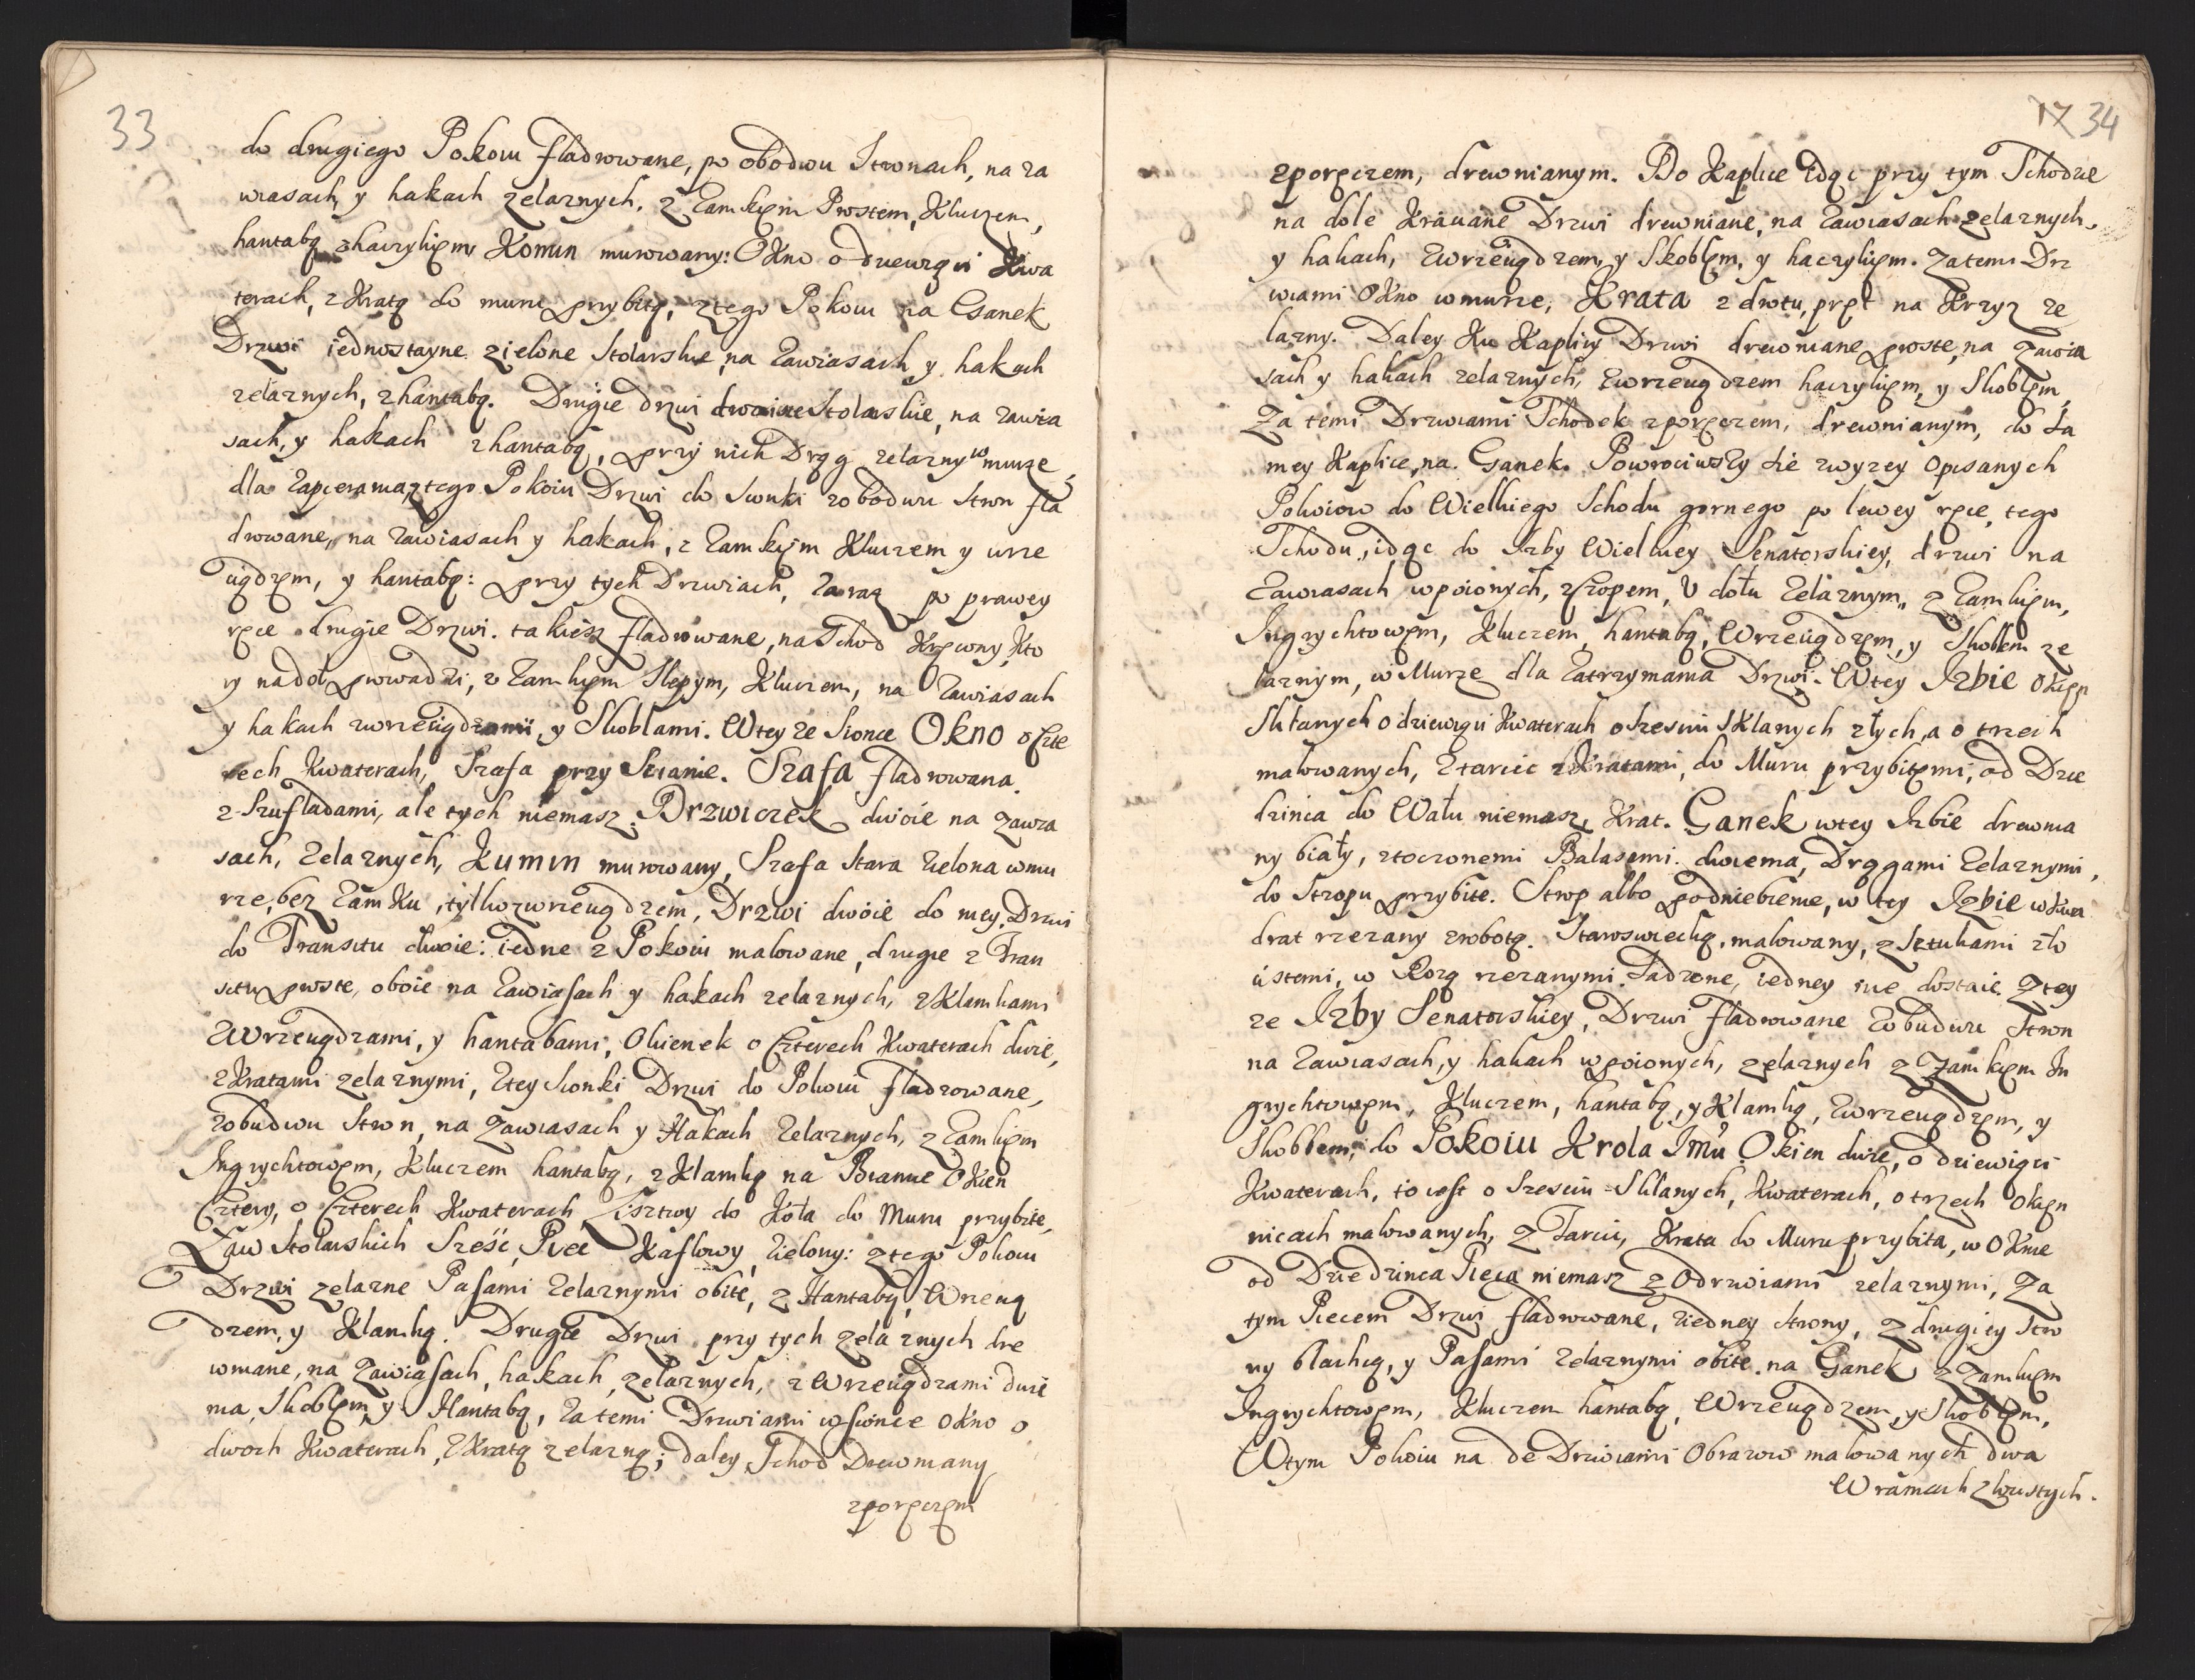 33
do drugiego Pokoiu fladrowane, po obodwu Stronach, na za
wiasach, y hakach zelaznych, z Zamkiem Prostem, Kluczem,
hantabą zhaczykiem, Komin murowany: Okno o dziewiąci Kwa
terach, z Kratą do muru przybitą, z tego Pokoiu na Ganek
Drzwi iednostayne zielone Stolarskie, na Zawiasach y hakach
zelaznych, zhantabą. Drugie drzwi dwoiste Stolarskie, na zawia
sach, y hakach zhantabą, przy nich Drąg zelazny w murze
dla zapierania, z tego Pokoiu Drzwi do Sionki zobodwu Stron fla
drowane, na Zawiasach y hakach, z Zamkiem Kluczem y wrze
ciądzem, y hantabą: przy tych Drzwiach, Zaraz po prawey
ręce drugie Drzwi takiesz fladrowane, na Schod Kręcony, Kto
ry nadoł prowadzi, z Zamkiem Slepym, Kluczem, na Zawiasach
y hakach zwrzeciądzami, y Skoblami. Wtey ze Sionce Okno o Czte
rech Kwaterach, Szafa przy Scianie. Szafa fladrowana
z Szufladami, ale tych niemasz; Drzwiczek dwoie na zawia
sach, Zelaznych, Kumin murowany, Szafa Stara Zielona w mu
rze, bez Zamku, tylko zwrzeciądzem, Drzwi dwoie do niey, Drzwi
do Transitu dwoie: iedne z Pokoiu malowane, drugie z Tran
situ proste, oboie na Zawiasach y hakach zelaznych, z Klamkami
Wrzeciądzami, y hantabami, Okienek o Czterech Kwaterach dwie,
z Kratami zelaznymi, Ztey Sionki Drzwi do Pokoiu fladrowane,
Zobudwu Stron, na Zawiasach y Hakach Zelaznych, z Zamkiem
Ingrychtowem, Kluczem hantabą, z Klamką na Bramie Okien
Cztery, o Czterech Kwaterach Lisztwy do Koła do Muru przybite,
Ław Stolarskich Sześć, Piec Kaflowy, Zielony: z tego Pokoiu
Drzwi zelazne Pasami Zelaznymi obite, z Hantabą, Wrzecią
dzem, y Klamką. Drugie Drzwi przy tych zelaznych dre
wniane, na Zawiasach, hakach, zelaznych, z Wrzeciądzami dwie
ma, Skoblem, y Hantabą, Za temi Drzwiami w sionce okno o
dwoch Kwaterach, z Kratą zelazną; daley Schod Drewniany
zporęczem
17 34
zporęczem, drewnianym. Do Kaplice idąc przy tym Schodzie
na dole Kraiane Drzwi drewniane, na Zawiasach zelaznych,
y hakach, Zwrzeciądzem, y Skoblem, y haczykiem. Za temi Drz
wiami Okno w murze, Krata z drotu, pręt na Krzyz ze
lazny. Daley Ku Kaplicy Drzwi drewniane proste, na zawia
sach y hakach zelaznych, Zwrzeciądzem haczykiem, y Skoblem,
Za temi Drzwiami Schodek zporęczem, drewnianym, do Sa
mey Kaplice, na Ganek. Powrociwszy sie zwyzey Opisanych
Pokoiow do Wielkiego Schodu gornego po lewey ręce, tego
Schodu, idąc do Izby Wielkiey Senatorskiey, drzwi na
Zawiasach wpoionych, zCzopem, U dołu Zelaznym, z Zamkiem,
Ingrychtowem, Kluczem, hantabą, Wrzeciądzem, y Skoblem ze
laznym, w Murze dla Zatrzymania Drzwi. Wtey Izbie Okien
Sklanych o dziewiąci Kwaterach o szesciu Sklanych złych, a o trzech
malowanych, Ztarcic z Kratami, do Muru przybitemi, od Dzie
dzinca do Wału niemasz, Krat. Ganek wtey Izbie drewnia
ny biały, ztoczonemi Balasami, dwiema, Drągami Zelaznymi,
do Stropu przybite. Strop albo podniebienie, w tey Izbie w Kwa
drat rzezany zrobotą Staroswiecką, malowany, z Sztukami zło
cistemi, w Rozą rzezanymi. Sadzone, iedney nie dostaie. Ztey
ze Izby Senatorskiey, Drzwi fladrowane Zobudwu Stron
na Zawiasach, y hakach wpoionych, zelaznych z Zamkiem In
grychtowem, Kluczem, hantabą, y Klamką, Zwrzeciądzem, y
Skoblem, do Pokoiu Krola Imci Okien dwie, o dziewiąci
Kwaterach, to iest o Szesciu Sklanych, Kwaterach, o trzech Okien
nicach malowanych, z Tarcic, Krata do Muru przybita, w Oknie
od Dziedzinca Pieca niemasz z Odrzwiami zelaznymi, Za
tym Piecem Drzwi fladrowane, ziedney strony, z drugiey Stro
ny Blachą, y Pasami Zelaznymi obite na Ganek z Zamkiem
Ingrychtowem, Kluczem hantabą, Wrzeciądzem, y Skoblem,
Wtym Pokoiu na de Drzwiami Obrazow malowanych dwa
W ramach złocistych.